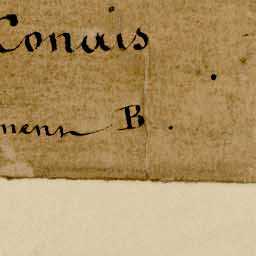 Conuis
menn B.